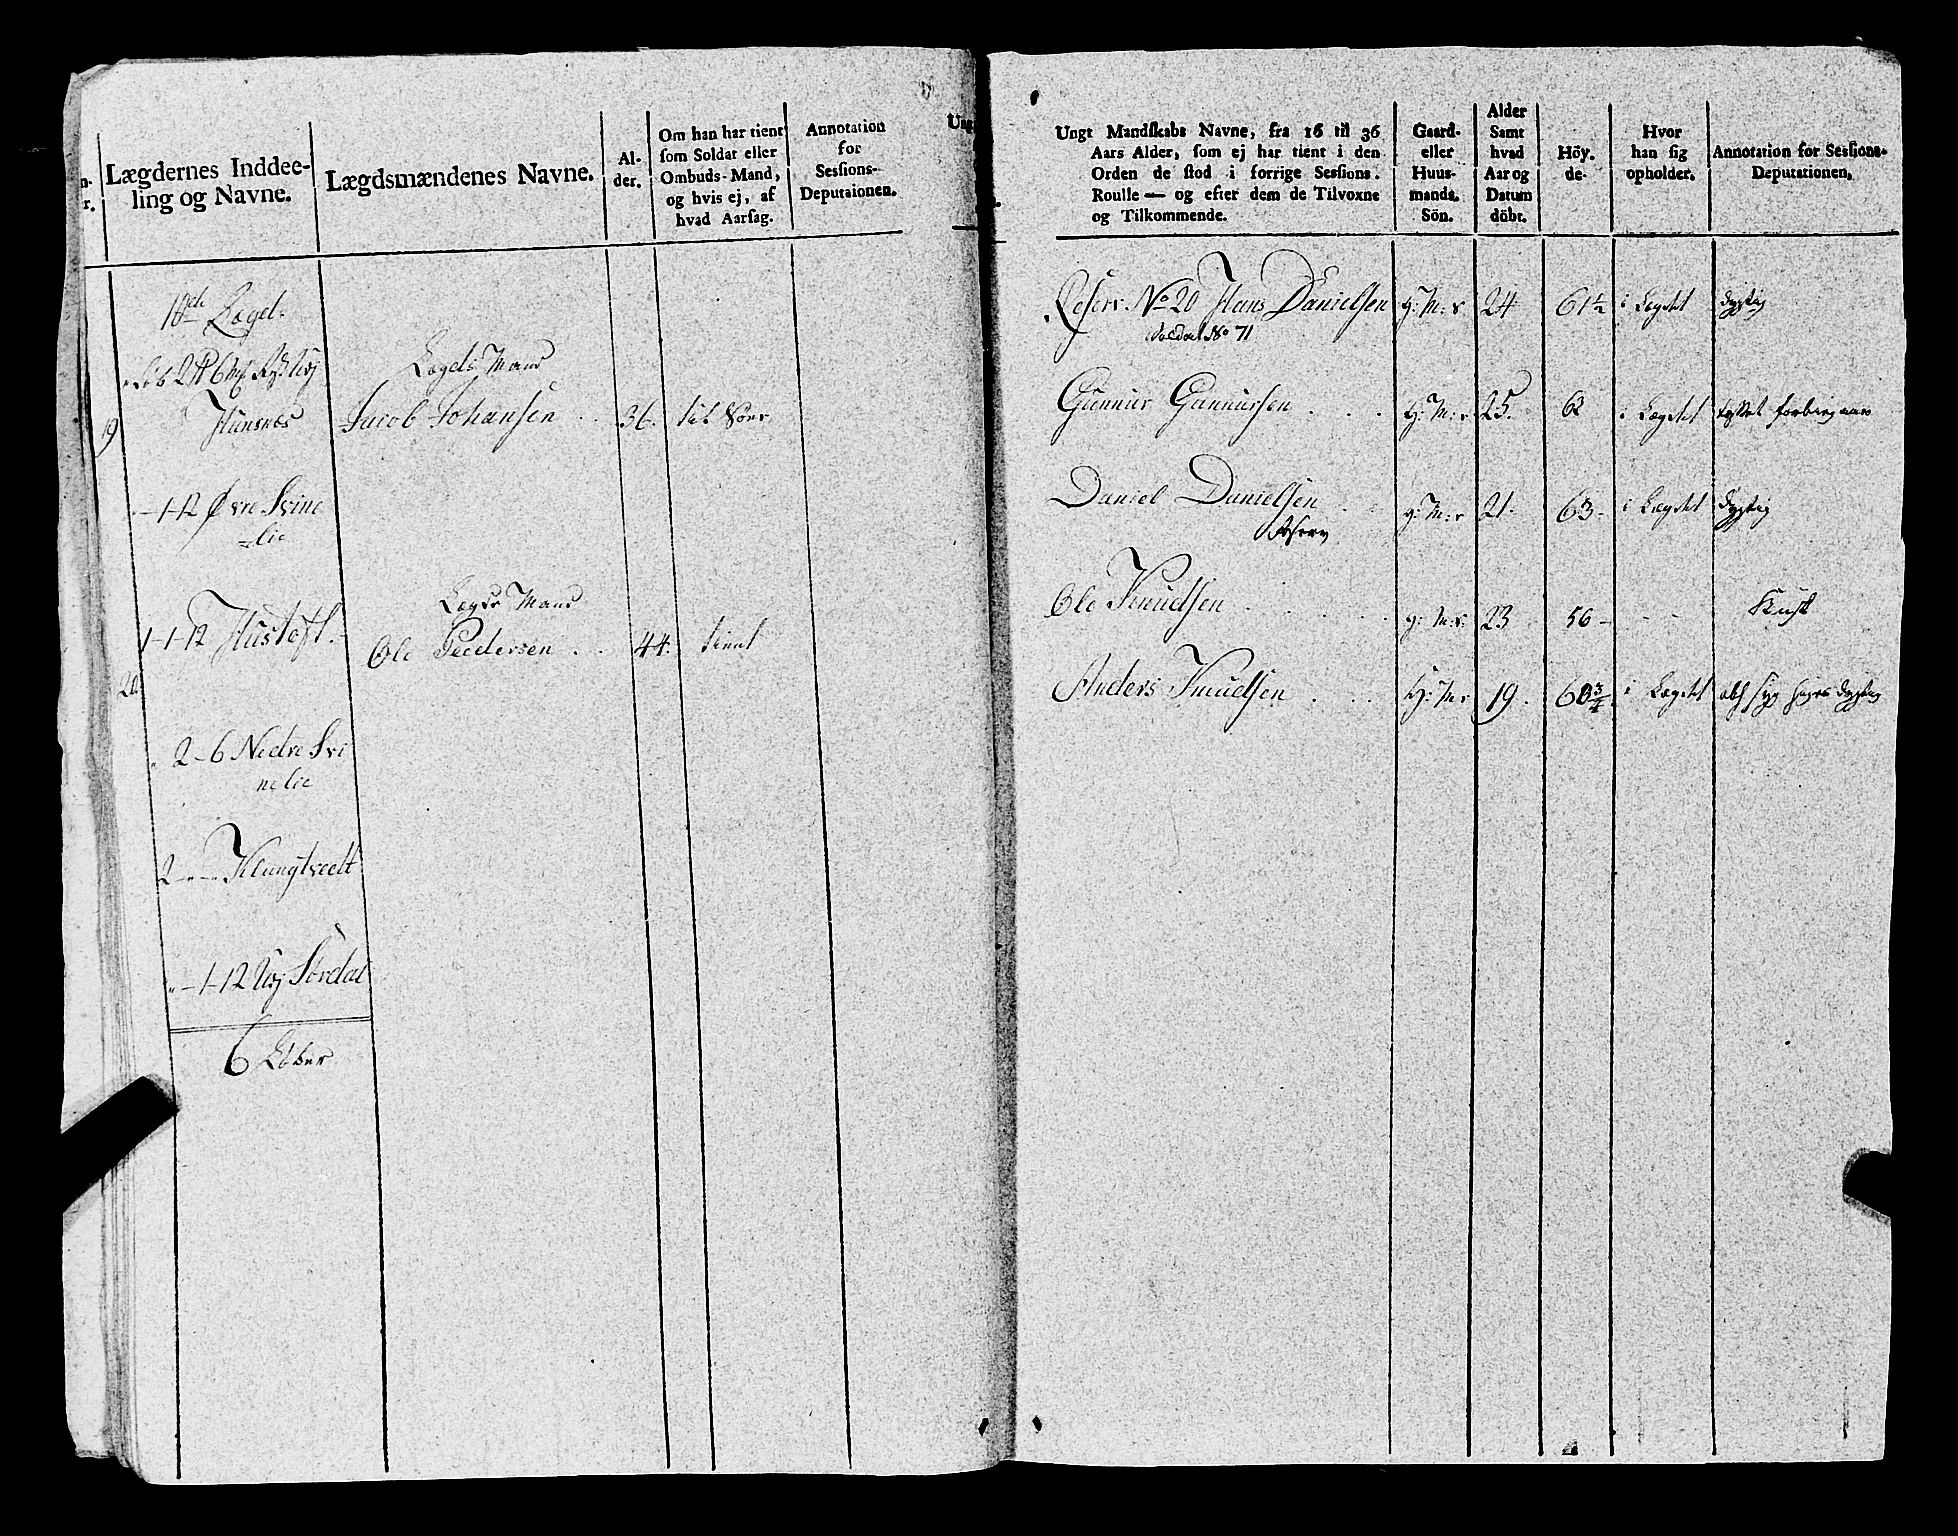 Lægdernes Inddee-
ling og Navne.
Lægdsmændenes Navne.
Al-
der.
Om han har tient
som Soldat eller
Ombuds-Mand,
og hvis ej, af
hvad Aarsag.
Annotation
for
Sessions-
Deputaionen.
10de Lægd.
Hunsnæs
19
Lægds Mand
Jacob Johansen . 36.
1-12 Øvre Svine
=lie
1-1-12 Hustoft.
Lægds Mand
Ole Pedersen . . 44. tient
20
2-6 Nedre Svi
nelie
2 Klungtvedt
1-12 Sørdal
6 Løber
Ungt Mandskabs Navne, fra 16 til 36
Aars Alder, som ej har tient i den
Orden de stod i forrige Sessions-
Roulle — og efter dem de Tilvoxne
og Tilkommende.
Gaard-
eller
Huus-
mands.
Sön.
Alder
Samt
hvad
Aar og
Datum
döbt.
Höy.
de.
Hvor
han sig
opholder.
Annotation for Sessions-
Deputationen.
Reserv. No 20 Hans Danielsen G: M: s 24 61½ i Lægdet dygtig
Soldat No 71
Gunnar Gunnarsen . . . G: M: s 25. 62 i Lægdet
Daniel Danielsen . . G: M: s 21. 63- i Lægdet dygtig
Reserv
Ole Knudsen . . . . G: M: s: 23 56 - - -
Anders Knudsen . . . G: M: s 19. 60¾ i Lægdet